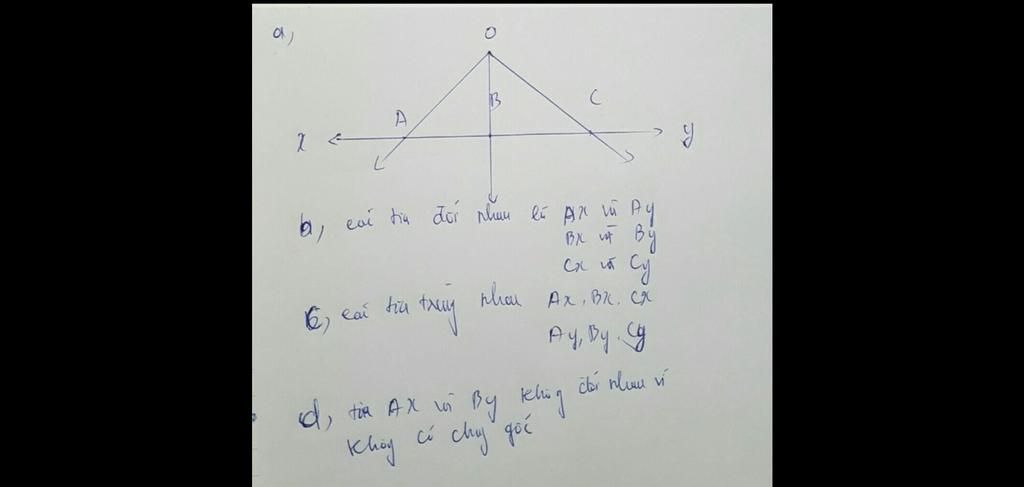 a,
O
A
B
C
x
y
b, các tia đối nhau là Ax và Ay
Bx và By
Cx và Cy
c, các tia trùng nhau Ax, Bx, Cx
Ay, By, Cy
d, tia Ax và By không đối nhau vì
không có chung gốc